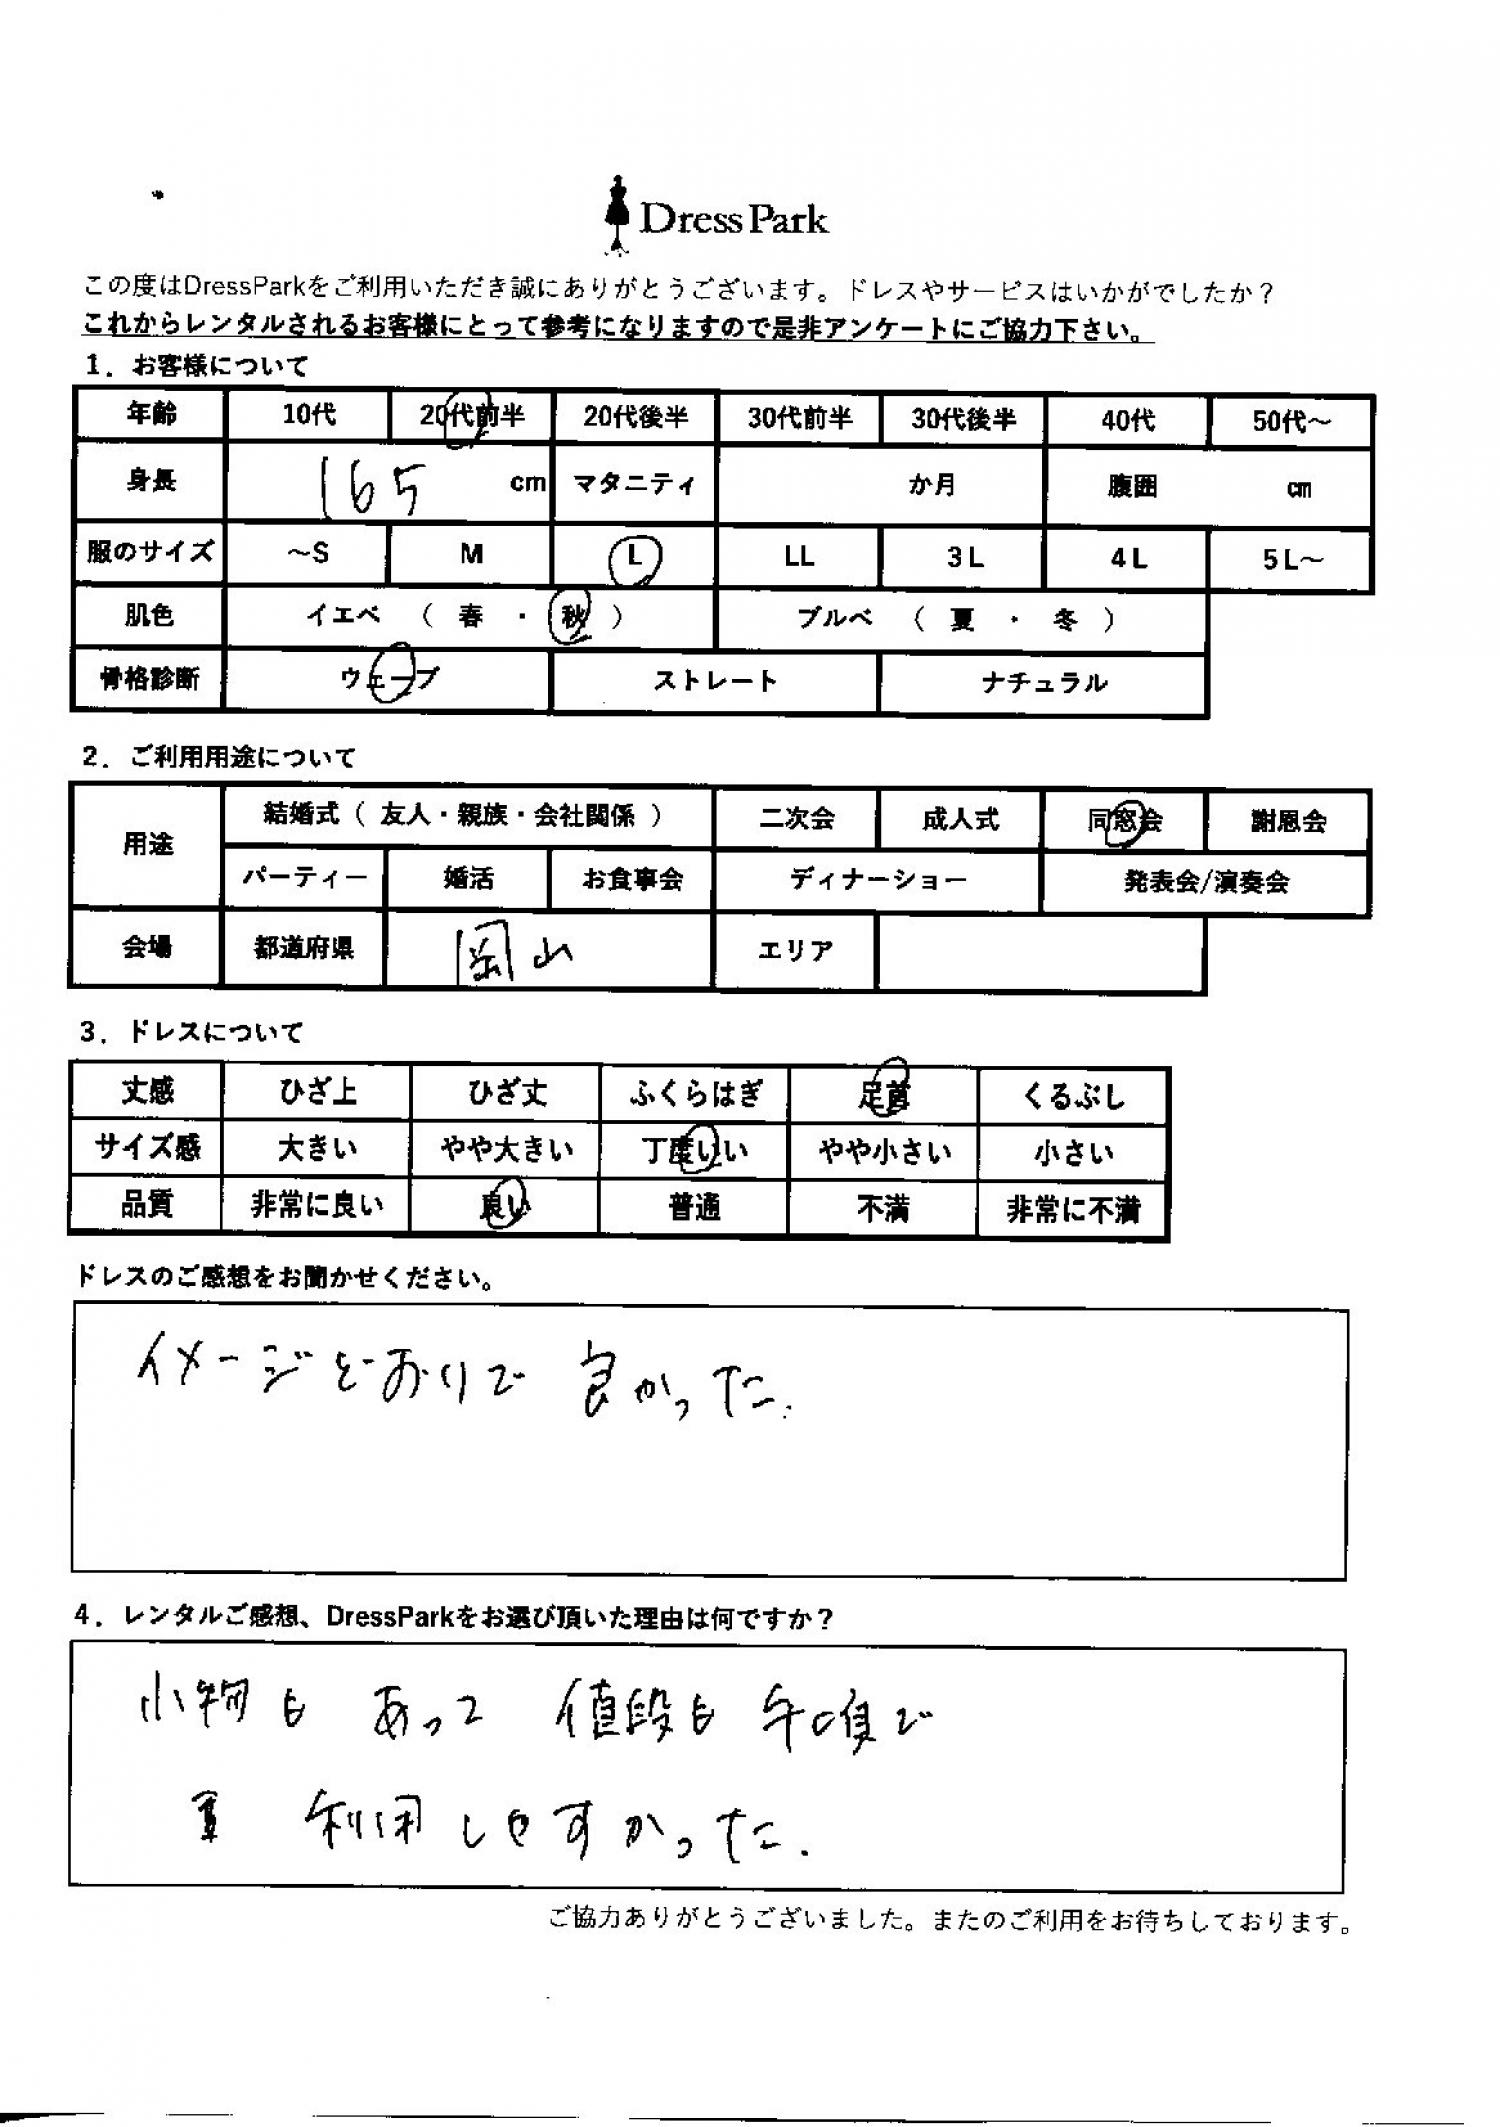 DressPark
この度はDressParkをご利用いただき誠にありがとうございます。ドレスやサービスはいかがでしたか？
これからレンタルされるお客様にとって参考になりますので是非アンケートにご協力下さい。
1．お客様について
年齢 10代 20代前半 20代後半 30代前半 30代後半 40代 50代～
身長 165 cm マタニティ か月 腹囲 cm
服のサイズ ～S M L LL 3L 4L 5L～
肌色 イエベ （ 春 ・ 秋 ） ブルベ （ 夏 ・ 冬 ）
骨格診断 ウェーブ ストレート ナチュラル
2．ご利用用途について
用途 結婚式（ 友人・親族・会社関係 ） 二次会 成人式 同窓会 謝恩会
パーティー 婚活 お食事会 ディナーショー 発表会/演奏会
会場 都道府県 岡山 エリア
3．ドレスについて
丈感 ひざ上 ひざ丈 ふくらはぎ 足首 くるぶし
サイズ感 大きい やや大きい 丁度いい やや小さい 小さい
品質 非常に良い 良い 普通 不満 非常に不満
ドレスのご感想をお聞かせください。
イメージどおりで 良かった.
4．レンタルご感想、DressParkをお選び頂いた理由は何ですか？
小物も あって 値段も 手頃で
利用しやすかった.
ご協力ありがとうございました。またのご利用をお待ちしております。